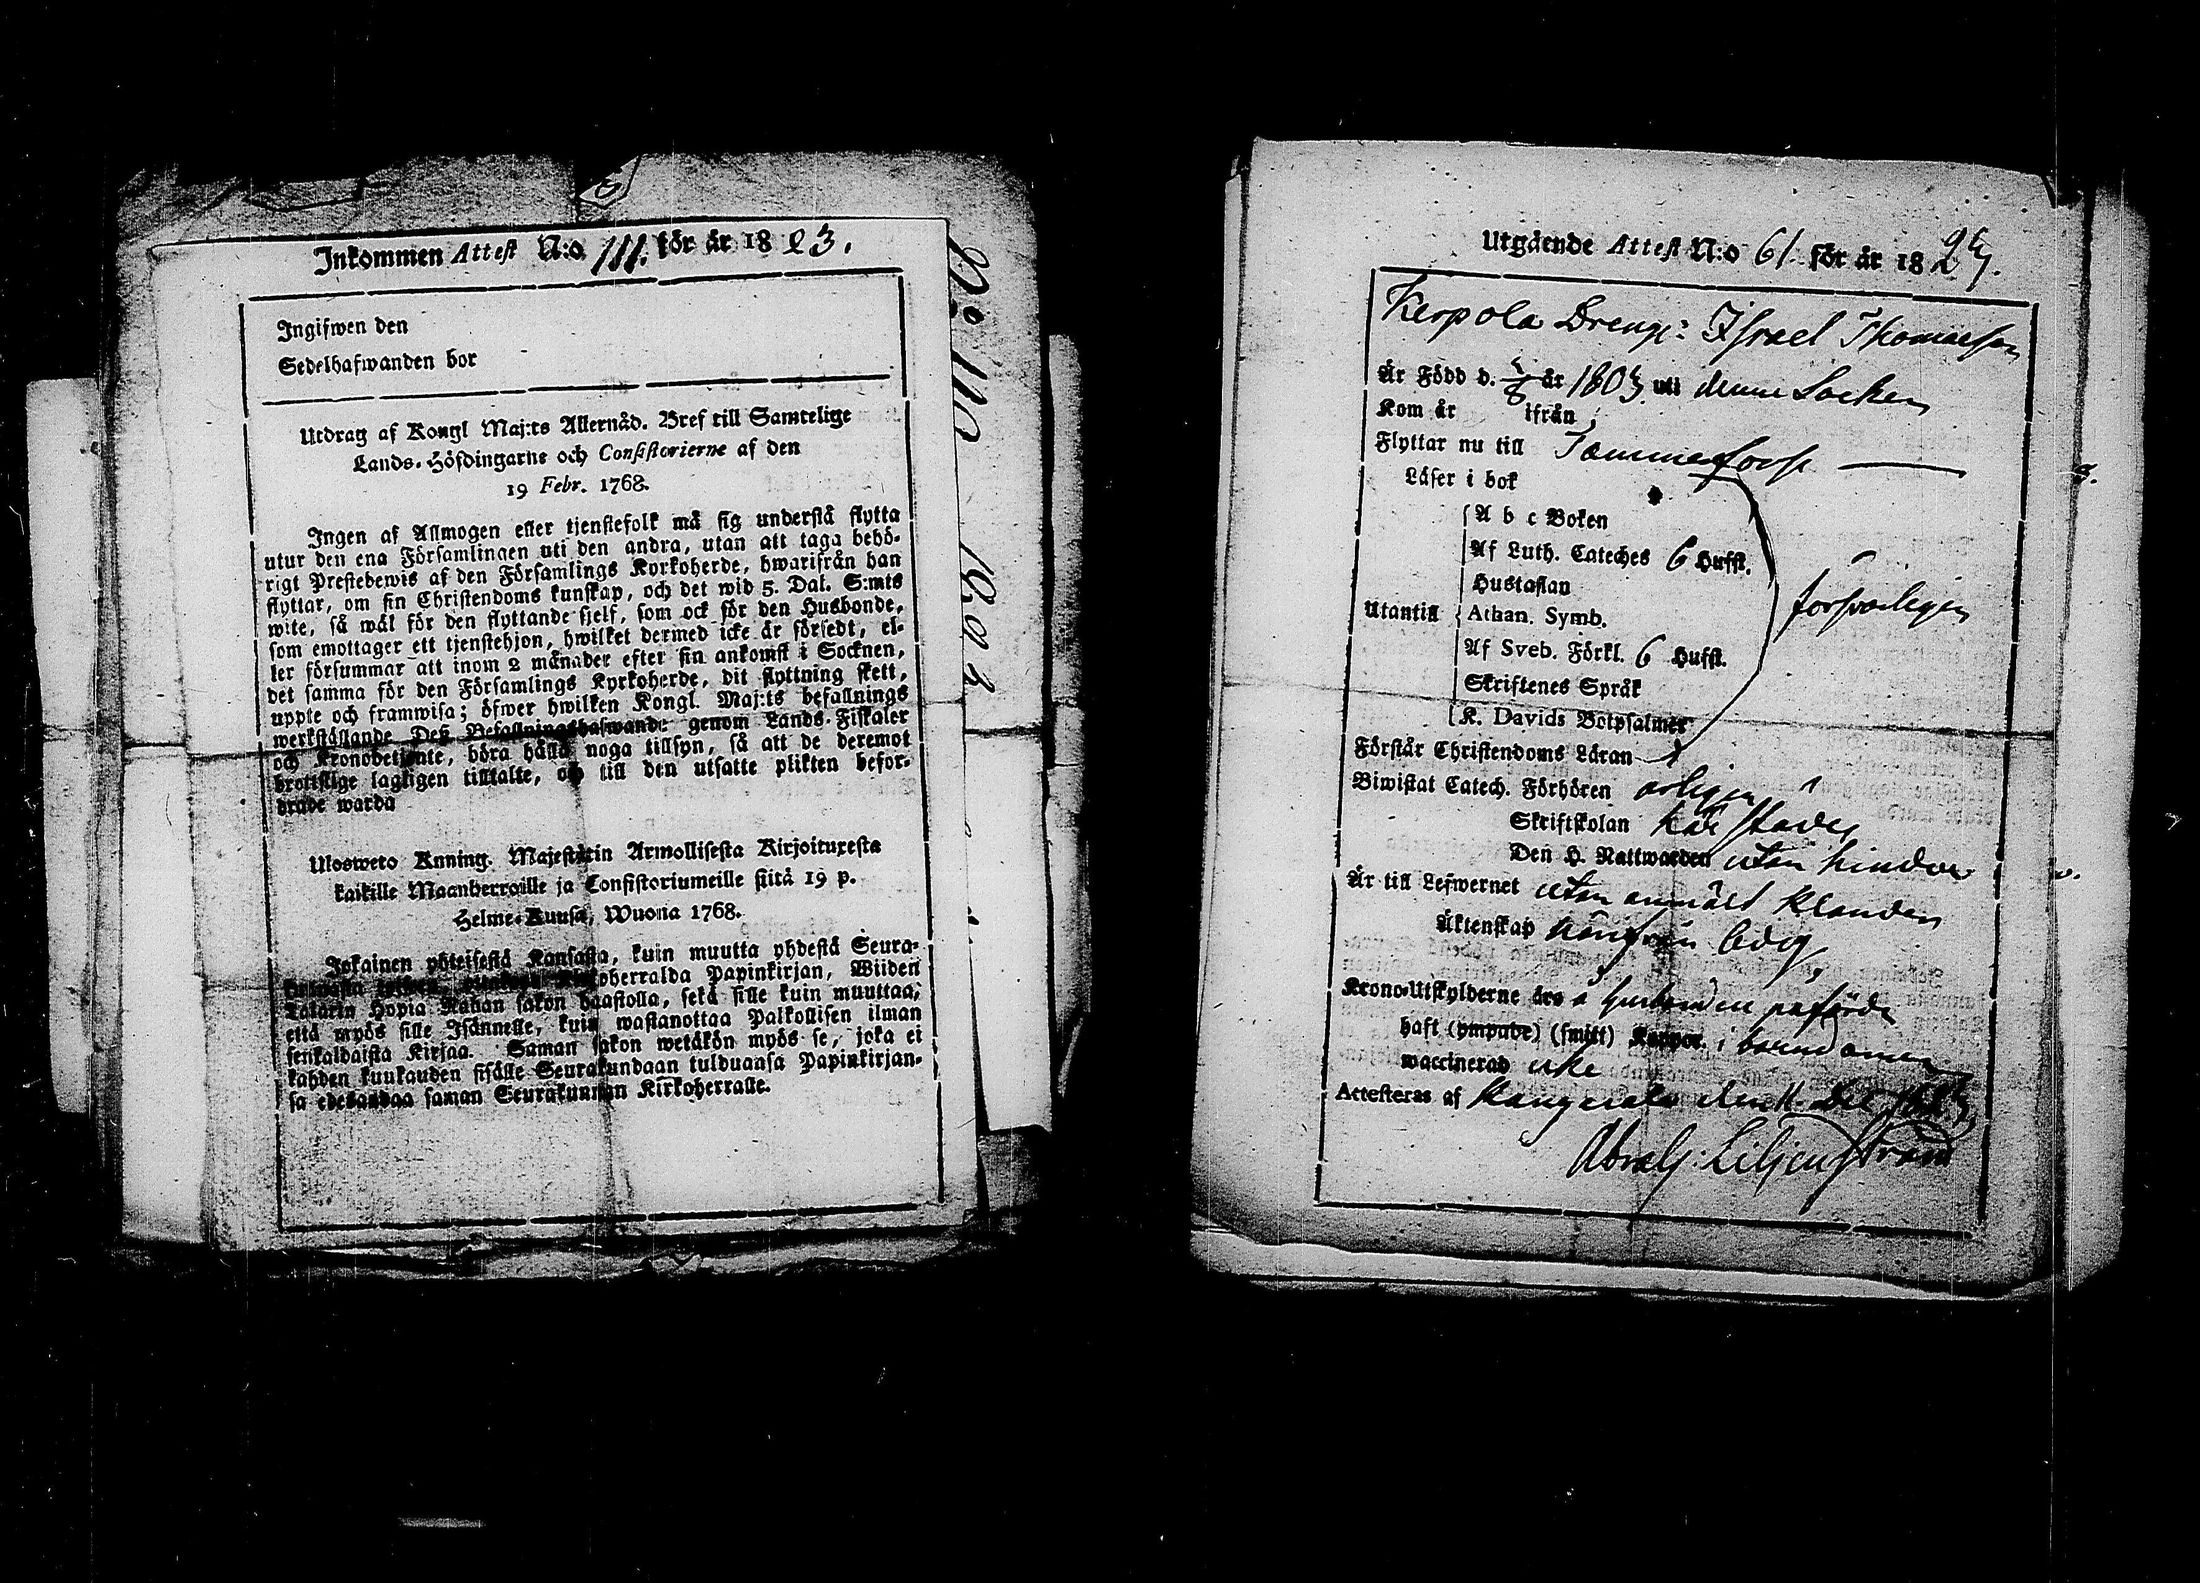 Inkommen Attest N:o 111. för år 1823.
Ingifwen den
Sedelhafwanden bor
Utdrag af Kongl Maj:ts Allernåd. Bref till Samtelige
Lands-Höfdingarne och Consistorierne af den
19 Febr. 1768.
Ingen af Allmogen eller tjenstefolk må sig understå flytta
utur den ena Församlingen uti den andra, utan att taga behö-
rigt Prestebewis af den Församlings Kyrkoherde, hwarifrån han
flyttar, om sin Christendoms kunskap, och det wid 5. Dal. S:mts
wite, så wäl för den flyttande sjelf, som ock för den Husbonde,
som emottager ett tjenstehjon, hwilket dermed icke är försedt, el-
ler försummar att inom 2 månader efter sin ankomst i Socknen,
det samma för den Församlings Kyrkoherde, dit flyttning skett,
uppte och framwisa; öfwer hwilken Kongl. Maj:ts befallnings
werkställande Deß Befallningshafwande genom Lands-Fiskaler
och Kronobetjente, böra hålla noga tillsyn, så att de deremot
brottslige lagligen tilltalte, och till den utsatte plikten befor-
drade warda
Ulosweto Knning. Majestätin Armollisesta Kirjoituxesta
kaikille Maanherroille ja Consistoriumeille siitä 19 p.
Helme-Kuusa, Wuona 1768.
Jokainen yhteisestä Kansasta, kuin muutta yhdestä Seura-
Kirkoherralda Papinkirjan, Wiiden
Talarin Hopia Rahan sakon haastolla, sekä sille kuin muuttaa,
että myös sille Isännelle, kuin wastanottaa Palkollisen ilman
senkaldaista Kirjaa. Saman sakon wetäkön myös se, joka ei
kahden kuukauden sisälle Seurakundaan tulduansa Papinkirjan-
sa edesandaa saman Seurakunnan Kirkoherralle.
Utgående Attest N:o 61. för år 1823.
Kerpola Dreng: Israel Thomasson
Är Född d. år 1803 uti denne Socken
Kom år ifrån
Flyttar nu till Tammerfors
Läser i bok
A b c Boken
Af Luth. Cateches 6 Hufst.
Hustaflan
Utantill Athan. Symb.
försvarligen
Af Sveb. Förkl. 6 Hufst.
Skriftenes Språk
K. Davids Botpsalmer
Förstår Christendoms Läran
Biwistat Catech. Förhören årligen
Skriftskolan här städes
Den H. Nattwarden utan hinder
Är till Lefwernet utan anmäldt klander
Äktenskap härifrån ledig
Krono-Utskylderne äro å husbonden påförde
haft (ympade) (smitt) Koppor. i barndomen
waccinerad icke
Attesteras af Kangasala den 11. Dec 1823
Abrah: Liljenstrand